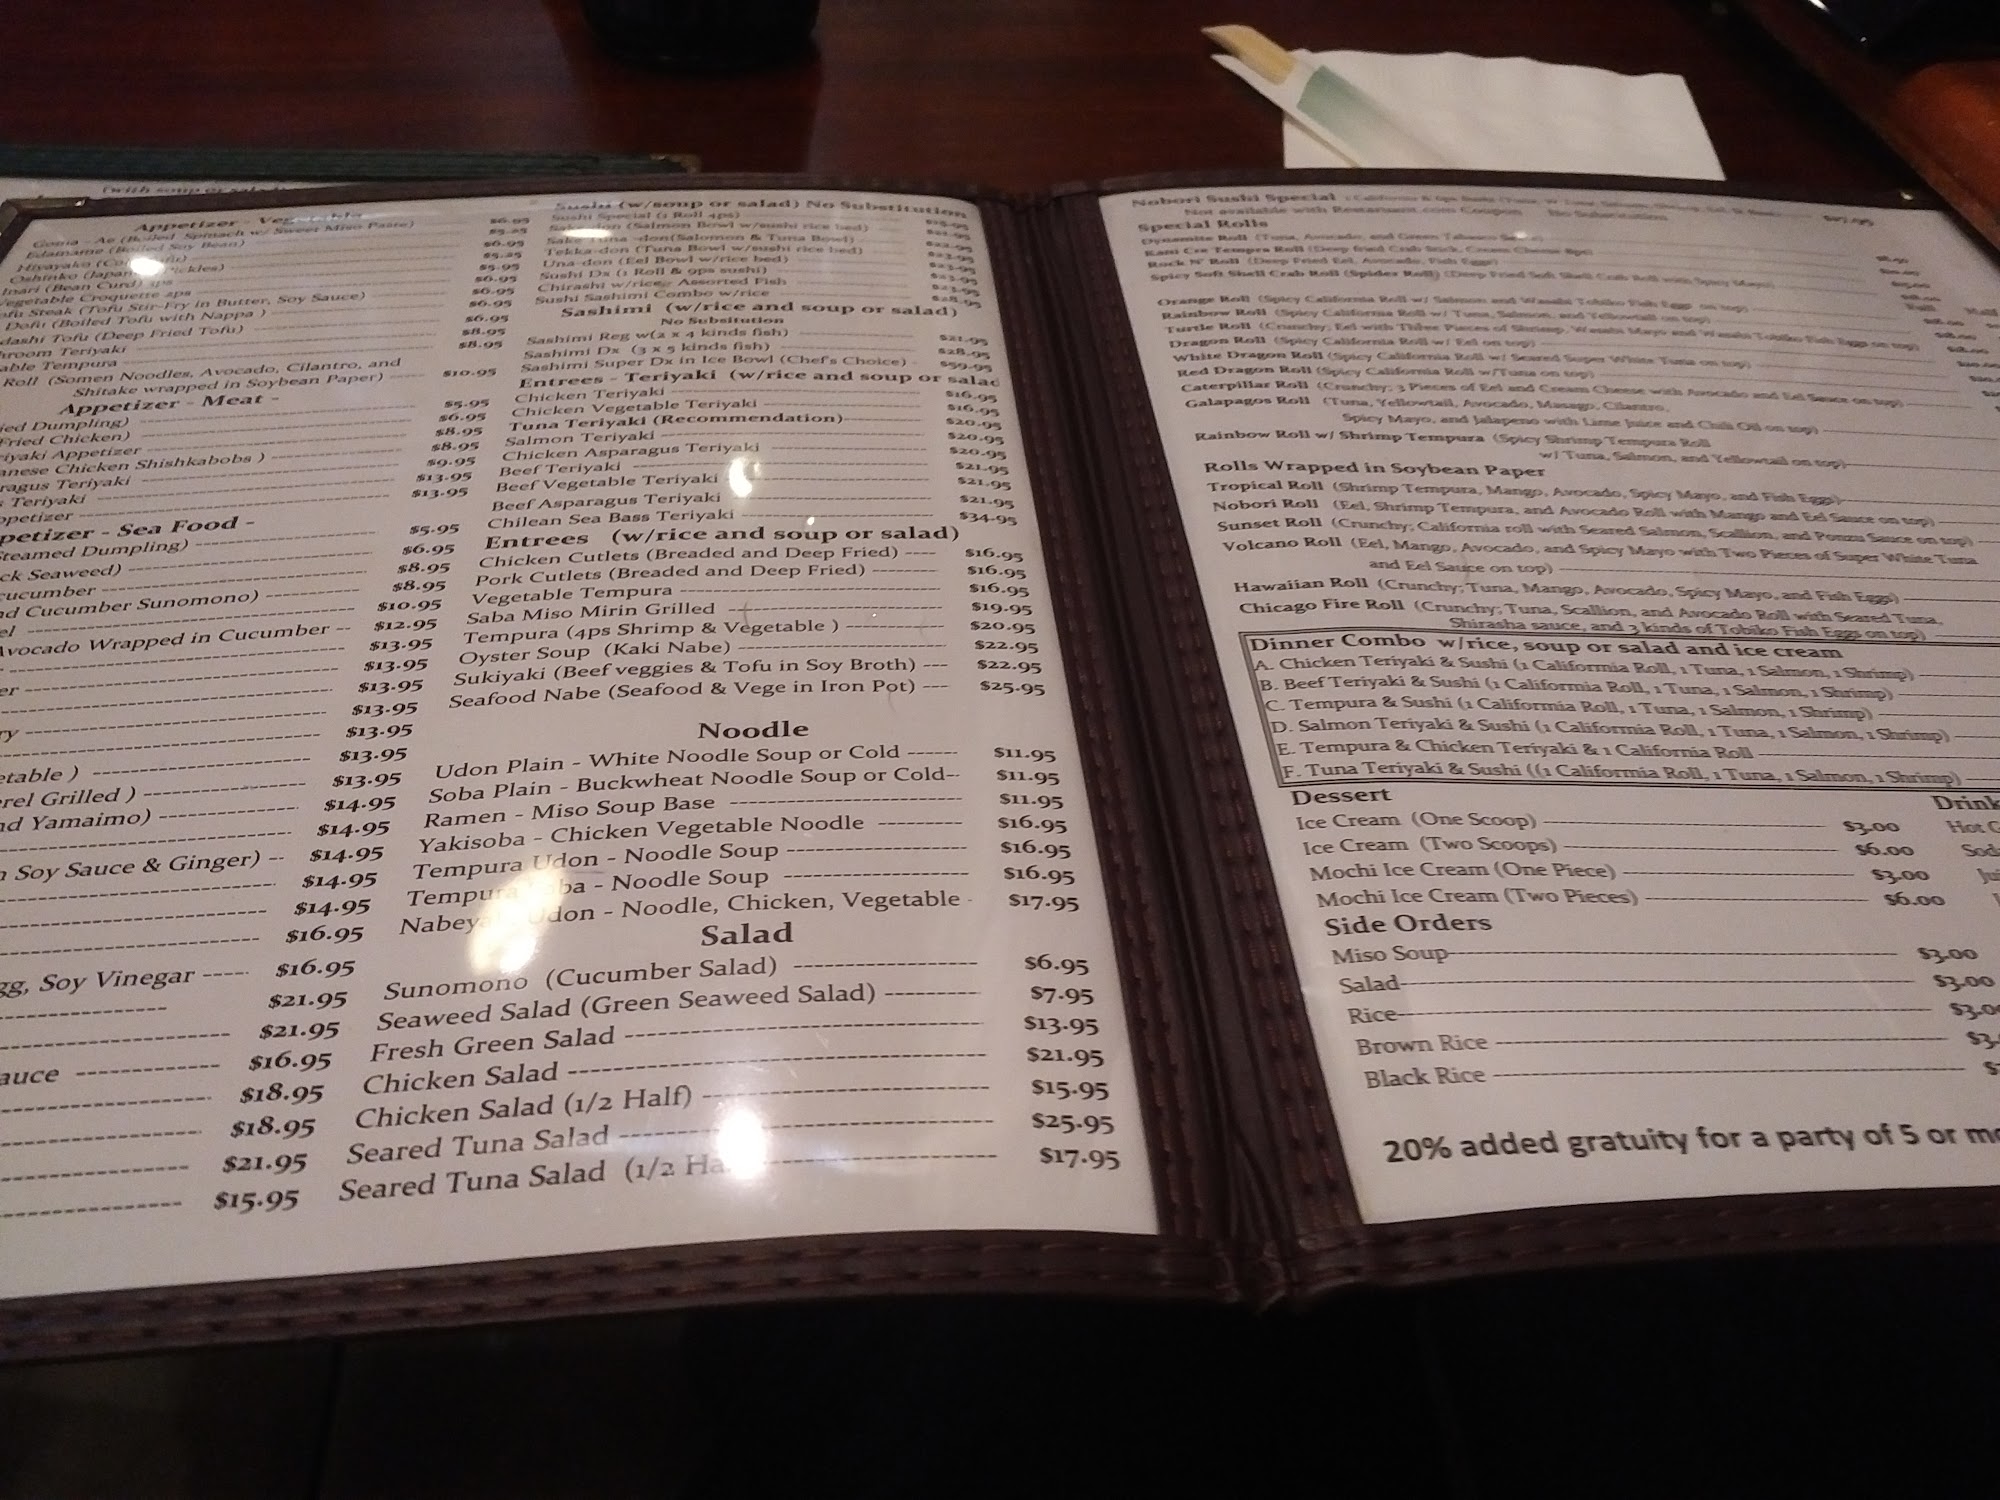 (with soup or salad
Appetizer - Vegetable
Goma - Ae (Boiled Spinach w/ Sweet Miso Paste) $6.95
Edamame (Boiled Soy Bean)
Hiyayako
Oshinko
Inari (Bean Curd)
Vegetable Croquette 2ps
Tofu Steak (Tofu Stir-Fry in Butter, Soy Sauce)
Dofu (Boiled Tofu with Nappa )
dashi Tofu (Deep Fried Tofu)
hroom Teriyaki
able Tempura
Roll (Somen Noodles, Avocado, Cilantro, and
Shitake wrapped in Soybean Paper) $10.95
Appetizer - Meat -
ied Dumpling) $5.95
Fried Chicken) $6.95
riyaki Appetizer $8.95
anese Chicken Shishkabobs ) $8.95
ragus Teriyaki $9.95
s Teriyaki $13.95
ppetizer $13.95
petizer - Sea Food -
Steamed Dumpling) $5.95
ck Seaweed) $6.95
cucumber $8.95
nd Cucumber Sunomono) $8.95
el $10.95
Avocado Wrapped in Cucumber $12.95
$13.95
er $13.95
$13.95
ry $13.95
$13.95
etable ) $13.95
rel Grilled ) $13.95
nd Yamaimo) $14.95
$14.95
n Soy Sauce & Ginger) $14.95
$14.95
$14.95
$16.95
gg, Soy Vinegar $16.95
$21.95
$21.95
auce $16.95
$18.95
$18.95
$21.95
$15.95
Sushi (w/soup or salad) No Substitution
Sushi Special (1 Roll 4ps)
Sake-don (Salmon Bowl w/sushi rice bed)
Sake Tuna -don(Salomon & Tuna Bowl)
Tekka-don (Tuna Bowl w/sushi rice bed)
Una-don (Eel Bowl w/rice bed)
Sushi Dx (1 Roll & 9ps sushi)
Chirashi w/rice, Assorted Fish
Sushi Sashimi Combo w/rice
Sashimi (w/rice and soup or salad)
No Subsitution
Sashimi Reg w(2 x 4 kinds fish) $21.95
Sashimi Dx (3 x 5 kinds fish) $28.95
Sashimi Super Dx in Ice Bowl (Chef's Choice) $59.95
Entrees - Teriyaki (w/rice and soup or salad
Chicken Teriyaki $16.95
Chicken Vegetable Teriyaki $16.95
Tuna Teriyaki (Recommendation) $20.95
Salmon Teriyaki $20.95
Chicken Asparagus Teriyaki $20.95
Beef Teriyaki $21.95
Beef Vegetable Teriyaki $21.95
Beef Asparagus Teriyaki $21.95
Chilean Sea Bass Teriyaki $34.95
Entrees (w/rice and soup or salad)
Chicken Cutlets (Breaded and Deep Fried) $16.95
Pork Cutlets (Breaded and Deep Fried) $16.95
Vegetable Tempura $16.95
Saba Miso Mirin Grilled $19.95
Tempura (4ps Shrimp & Vegetable ) $20.95
Oyster Soup (Kaki Nabe) $22.95
Sukiyaki (Beef veggies & Tofu in Soy Broth) $22.95
Seafood Nabe (Seafood & Vege in Iron Pot) $25.95
Noodle
Udon Plain - White Noodle Soup or Cold $11.95
Soba Plain - Buckwheat Noodle Soup or Cold $11.95
Ramen - Miso Soup Base $11.95
Yakisoba - Chicken Vegetable Noodle $16.95
Tempura Udon - Noodle Soup $16.95
Tempura Soba - Noodle Soup $16.95
Nabeya Udon - Noodle, Chicken, Vegetable $17.95
Salad
Sunomono (Cucumber Salad) $6.95
Seaweed Salad (Green Seaweed Salad) $7.95
Fresh Green Salad $13.95
Chicken Salad $21.95
Chicken Salad (1/2 Half) $15.95
Seared Tuna Salad $25.95
Seared Tuna Salad (1/2 Ha $17.95
Nobori Sushi Special
Not available with Restaurant.com Coupon No Substitution
Special Rolls
Dynamite Roll (Tuna, Avocado, and Green Tabasco
Kani Cre Tempra Roll (Deep fried Crab Stick, Cream Cheese 8ps)
Rock N' Roll (Deep Fried Eel, Avocado, Fish Eggs)
Spicy Soft Shell Crab Roll (Spider Roll) (Deep Fried Soft Shell Crab Roll with Spicy Mayo)
Orange Roll (Spicy California Roll w/ Salmon and Wasabi Tobiko Fish Eggs on top)
Rainbow Roll (Spicy California Roll w/ Tuna, Salmon, and Yellowtail on top)
Turtle Roll (Crunchy; Eel with Three Pieces of Shrimp, Wasabi Mayo and Wasabi Tobiko Fish Eggs on top)
Dragon Roll (Spicy California Roll w/ Eel on top)
White Dragon Roll (Spicy California Roll w/ Seared Super White Tuna on top)
Red Dragon Roll (Spicy California Roll w/Tuna on top)
Caterpillar Roll (Crunchy; 3 Pieces of Eel and Cream Cheese with Avocado and Eel Sauce on top)
Galapagos Roll (Tuna, Yellowtail, Avocado, Masago, Cilantro,
Spicy Mayo, and Jalapeno with Lime Juice and Chili Oil on top)
Rainbow Roll w/ Shrimp Tempura (Spicy Shrimp Tempura Roll
w/ Tuna, Salmon, and Yellowtail on top)
Rolls Wrapped in Soybean Paper
Tropical Roll (Shrimp Tempura, Mango, Avocado, Spicy Mayo, and Fish Eggs)
Nobori Roll (Eel, Shrimp Tempura, and Avocado Roll with Mango and Eel Sauce on top)
Sunset Roll (Crunchy; California roll with Seared Salmon, Scallion, and Ponzu Sauce on top)
Volcano Roll (Eel, Mango, Avocado, and Spicy Mayo with Two Pieces of Super White Tuna
and Eel Sauce on top)
Hawaiian Roll (Crunchy; Tuna, Mango, Avocado, Spicy Mayo, and Fish Eggs)
Chicago Fire Roll (Crunchy; Tuna, Scallion, and Avocado Roll with Seared Tuna,
Shirasha sauce, and 3 kinds of Tobiko Fish Eggs on top)
Dinner Combo w/rice, soup or salad and ice cream
A. Chicken Teriyaki & Sushi (1 Califormia Roll, 1 Tuna, 1 Salmon, 1 Shrimp)
B. Beef Teriyaki & Sushi (1 Califormia Roll, 1 Tuna, 1 Salmon, 1 Shrimp)
C. Tempura & Sushi (1 Califormia Roll, 1 Tuna, 1 Salmon, 1 Shrimp)
D. Salmon Teriyaki & Sushi (1 Califormia Roll, 1 Tuna, 1 Salmon, 1 Shrimp)
E. Tempura & Chicken Teriyaki & 1 Califormia Roll
F. Tuna Teriyaki & Sushi ((1 Califormia Roll, 1 Tuna, 1 Salmon, 1 Shrimp)
Dessert
Ice Cream (One Scoop) $3.00
Ice Cream (Two Scoops) $6.00
Mochi Ice Cream (One Piece) $3.00
Mochi Ice Cream (Two Pieces) $6.00
Drink
Hot G
Sod
Ju
Side Orders
Miso Soup $3.00
Salad $3.00
Rice $3.0
Brown Rice $3.
Black Rice $
20% added gratuity for a party of 5 or mo